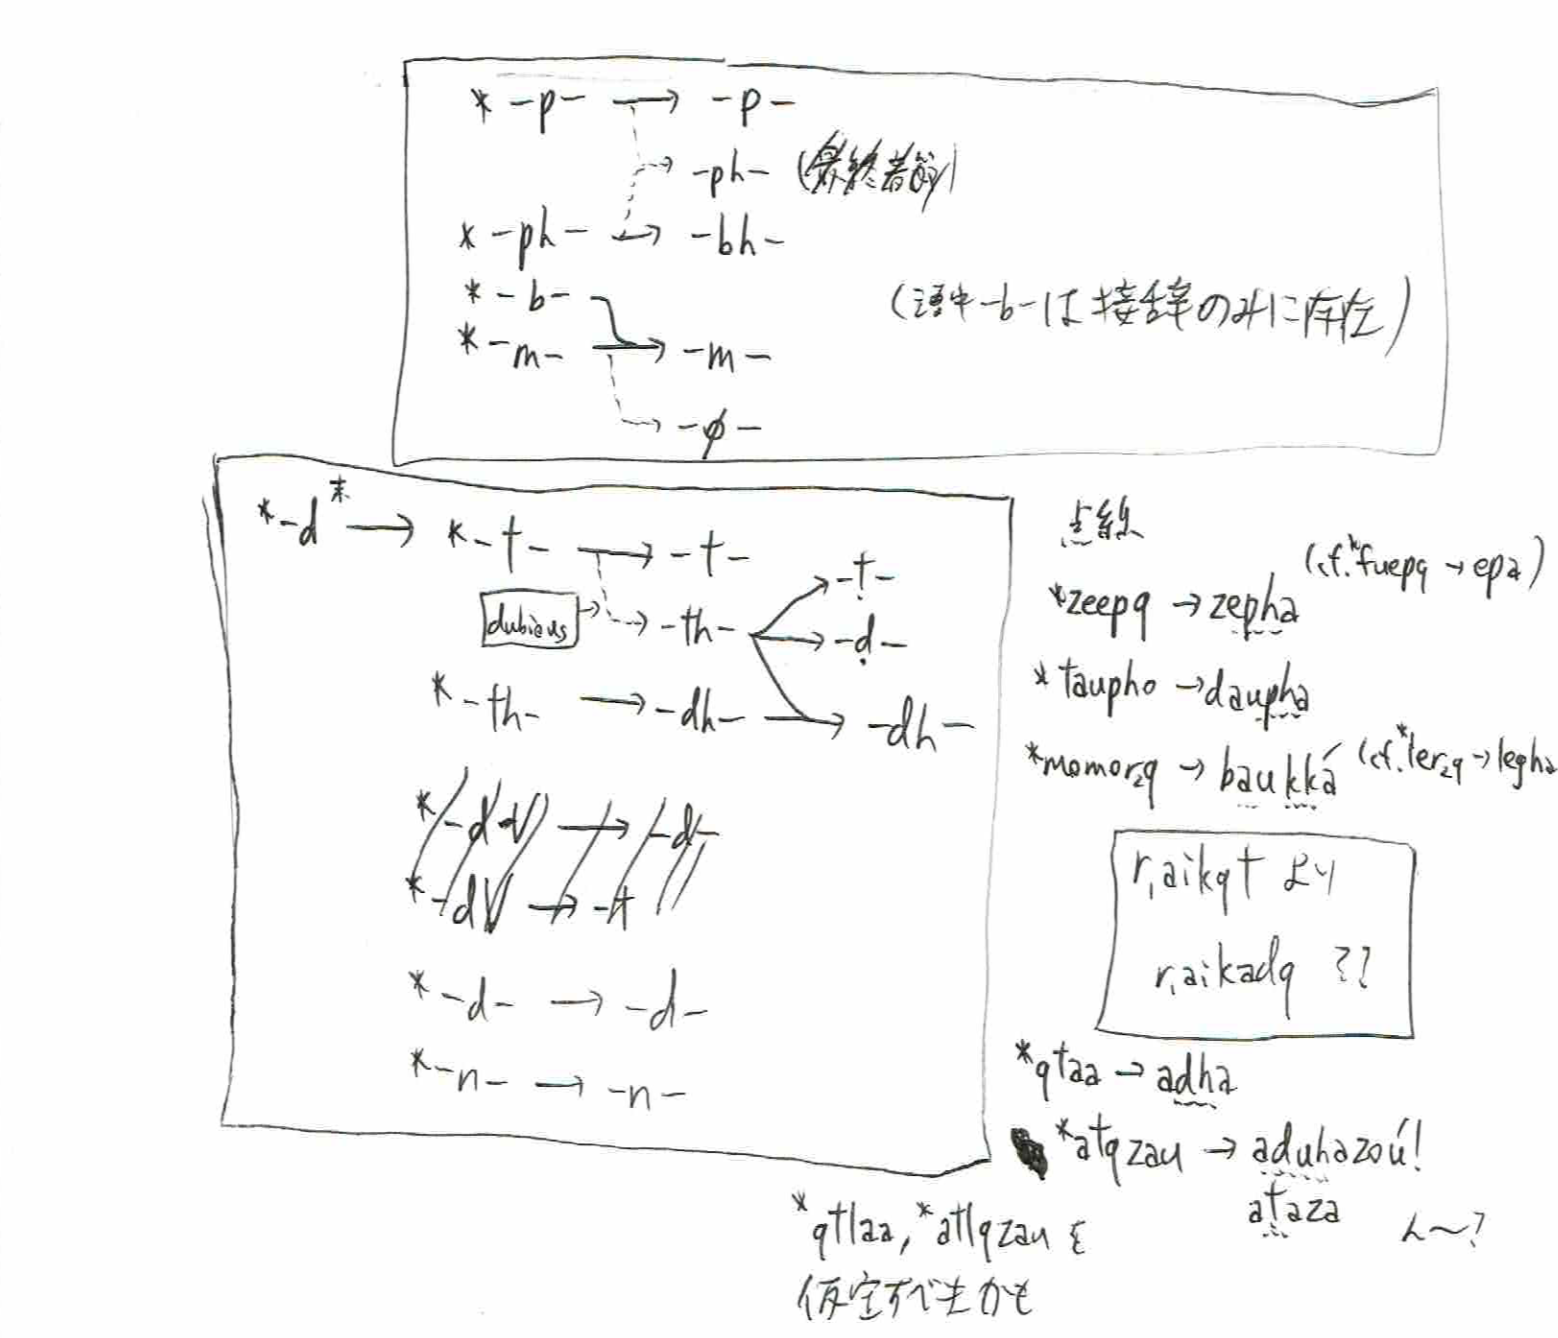 * -p- → -p-
-ph- (最終音節)
* -ph- → -bh-
* -b-
(語中-b-は接辞のみに存在)
* -m- → -m-
-ø-
*-d末 → *-t- → -t-
dubious → -th-
-ṭ-
-ḍ-
*-th- → -dh- → -dh-
*-d-V → -d-
*-dV → -t
*-d- → -d-
*-n- → -n-
点線
(cf. *fuepq → epa)
*zeepq → zepha
*taupho → daupha
*momor₂q → baukká (cf. *ler₂q → legha
r₁aikqt より
r₁aikadq ??
*qtaa → adha
*atqzau → aduhazoú!
ataza
ん〜?
*qtlaa, *atlqzau を
仮定すべきかも